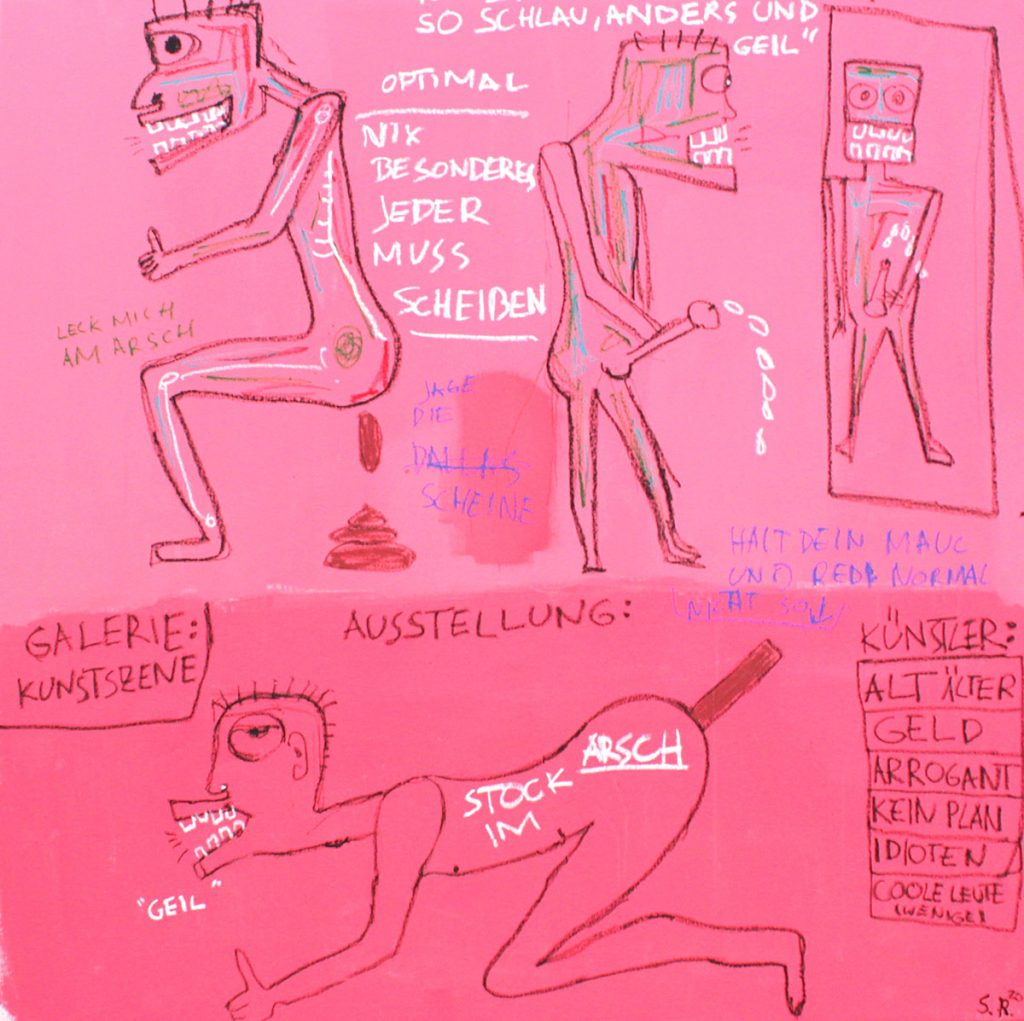 SO SCHLAU, ANDERS UND
GEIL"
OPTIMAL
NIX
BESONDERES
JEDER
MUSS
SCHEIßEN
LECK MICH
AM ARSCH
JAGE
DIE
DALLAS
SCHEINE
HALT DEIN MAUL
UND REDE NORMAL
GALERIE:
KUNSTSZENE
AUSSTELLUNG:
KÜNSTLER:
ALT ÄLTER
GELD
ARROGANT
KEIN PLAN
IDIOTEN
COOLE LEUTE
(WENIGE)
STOCK
IM
ARSCH
"GEIL"
S.R. 20